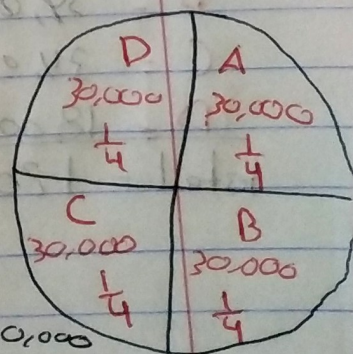 D
30,000
1/4
A
30,000
1/4
C
30,000
1/4
B
30,000
1/4
0,000